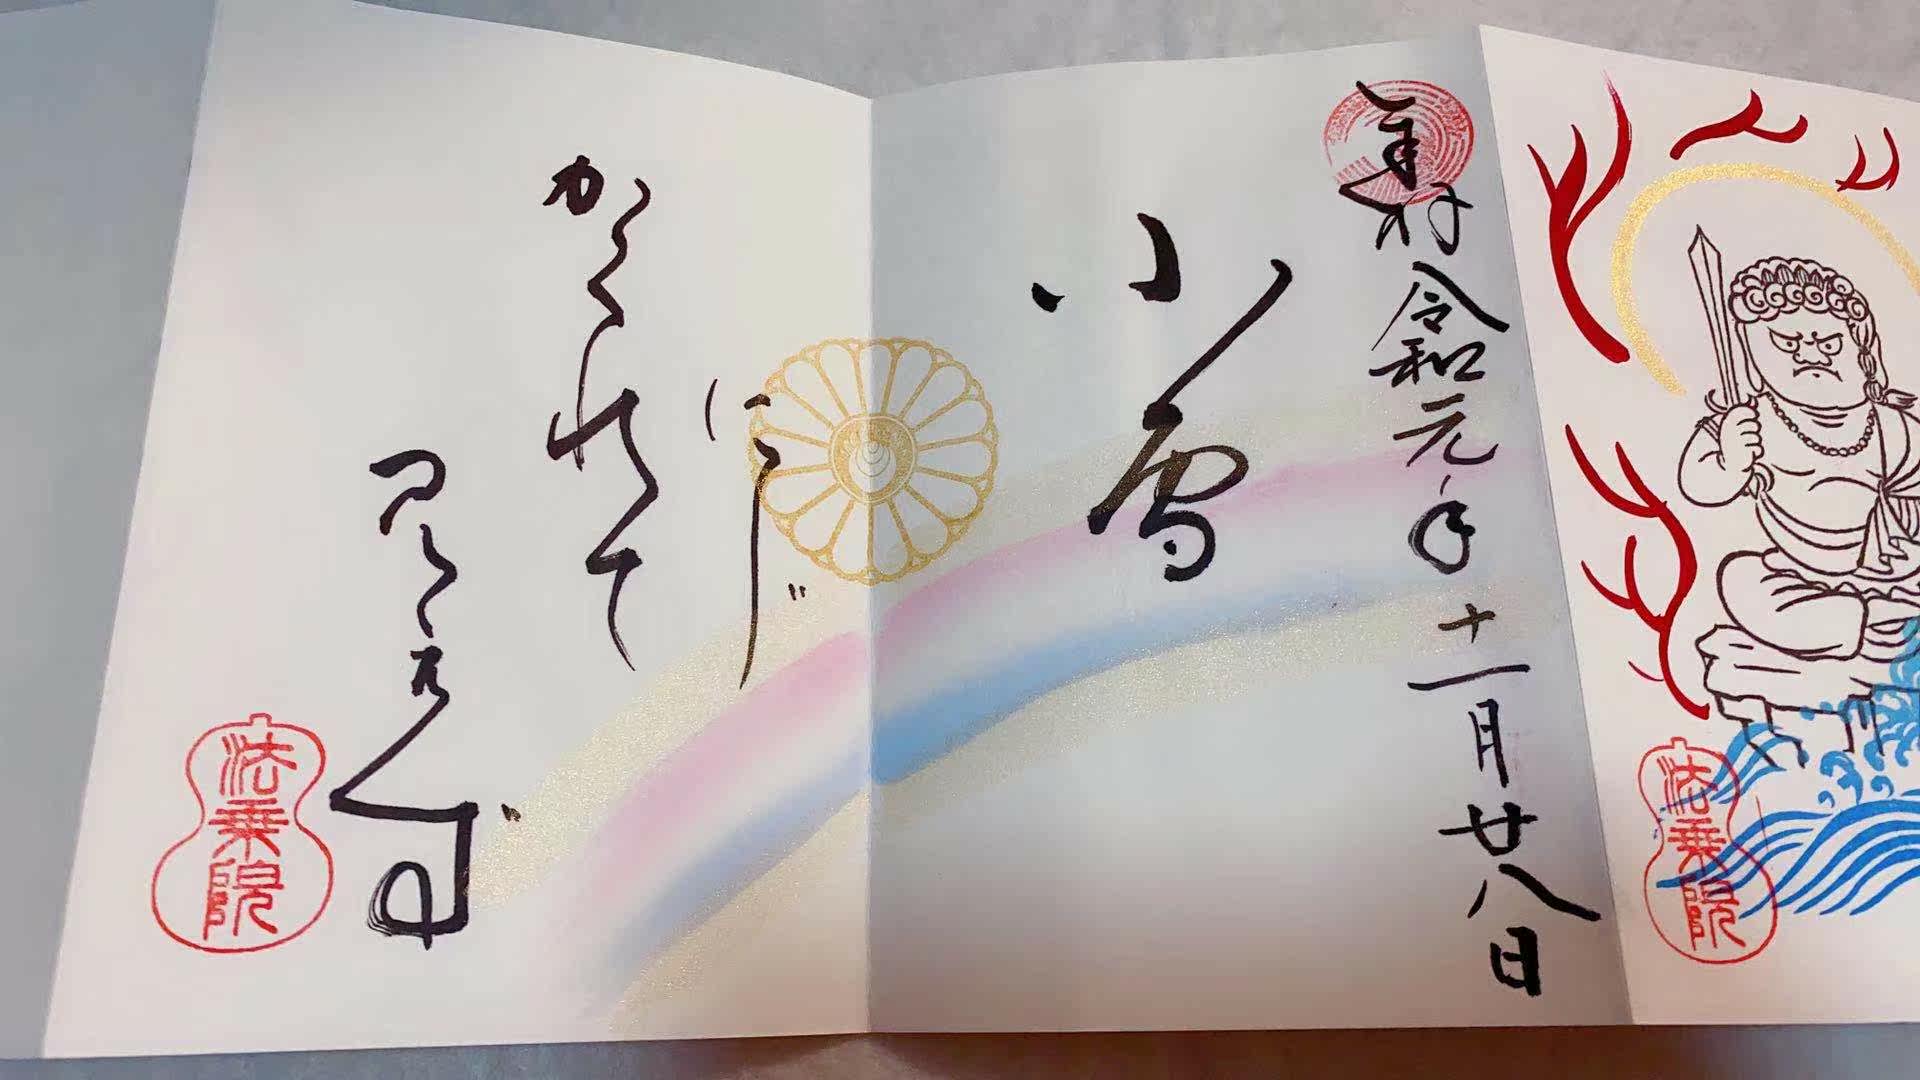 奉拝 令和元年十一月廿八日
小雪
にじ
かくれて
見えず
法乗院
法乗院